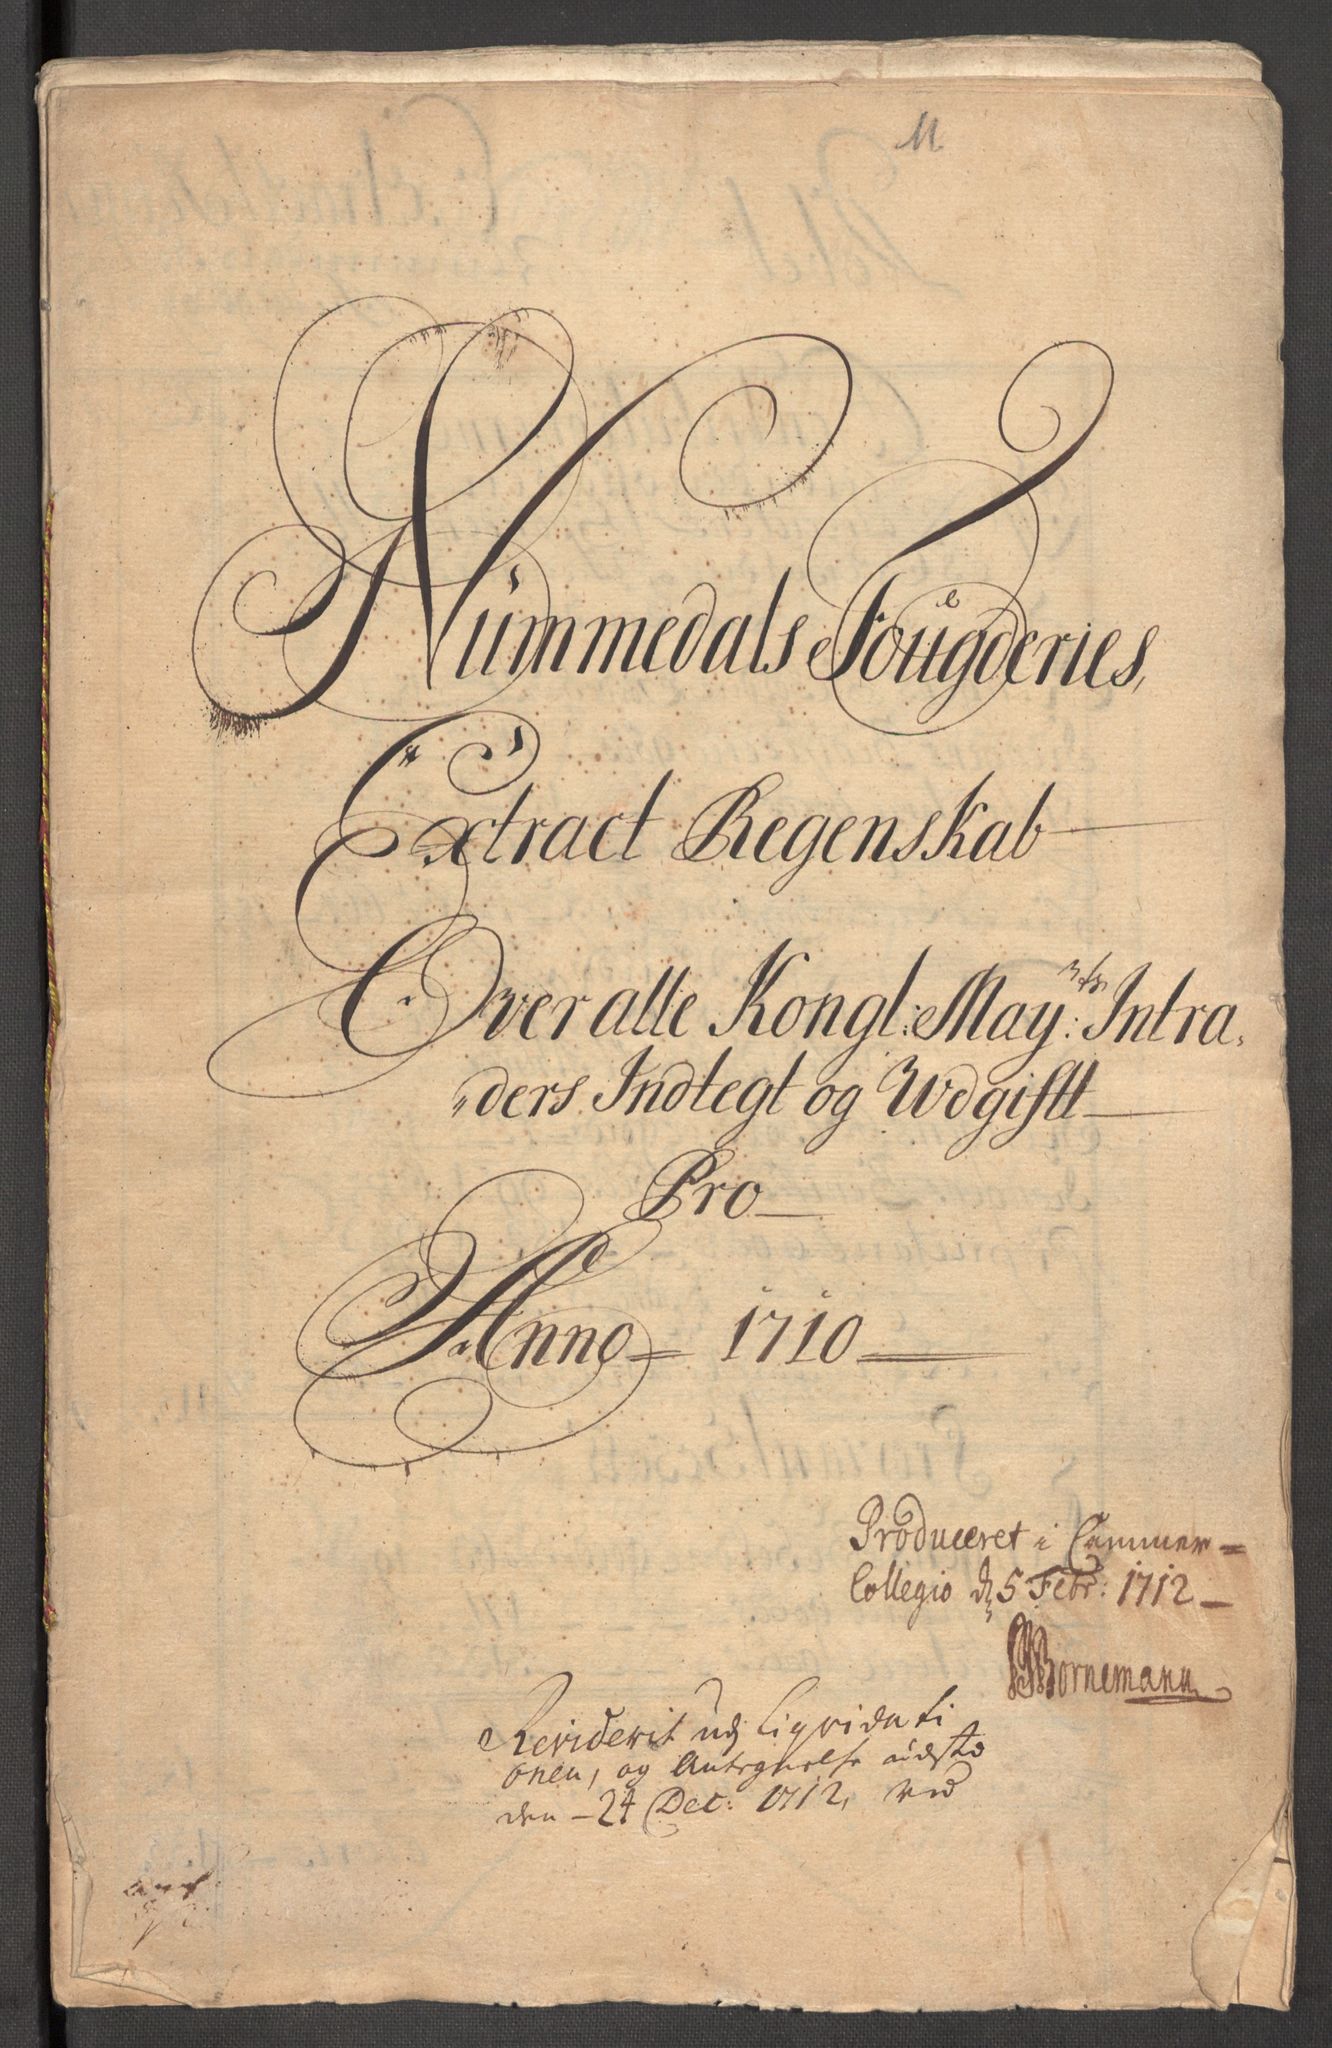 Nümmedals Fougderies,
Extract Regenskab
Over alle Kongl: May:ᵗˢ Intra,
„ders Indtegt og Udgifftt
Pro
Anno 1710
Produceret i Cammer=
Collegio d 5 Febr: 1712
Bornemann
Reviderit udj Liqvidati
onen, og Antegnelse udsted
den 24 Dec: 1712, ved